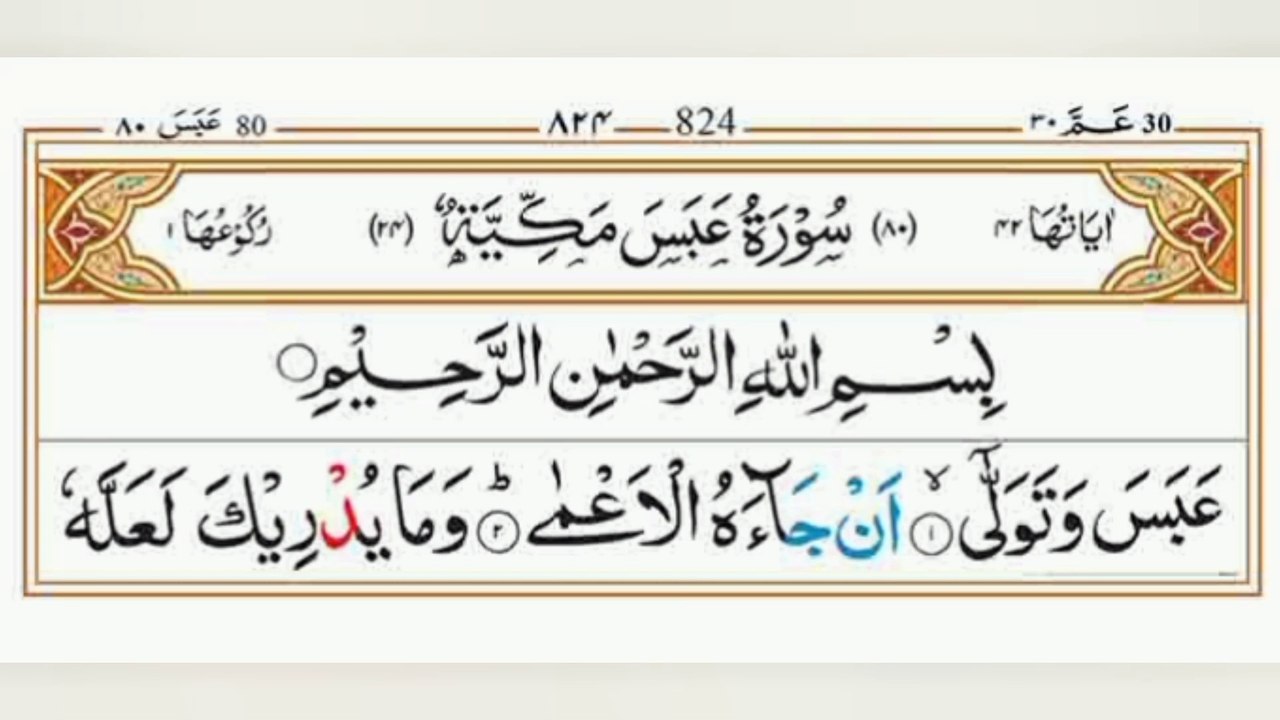 30 عَمَّ ٣٠ 824 ٨٢٤ 80 عَبَسَ ٨٠
اٰيَاتُهَا ٤٢ (٨٠) سُوْرَةُ عَبَسَ مَكِّيَّةٌ (٢٤) رُكُوْعُهَا ١
بِسْمِ اللّٰهِ الرَّحْمٰنِ الرَّحِيْمِ ○
عَبَسَ وَتَوَلّٰٓى ۙ﴿١﴾ اَنْ جَآءَهُ الْاَعْمٰى ؕ﴿٢﴾ وَمَا يُدْرِيْكَ لَعَلَّهٗ